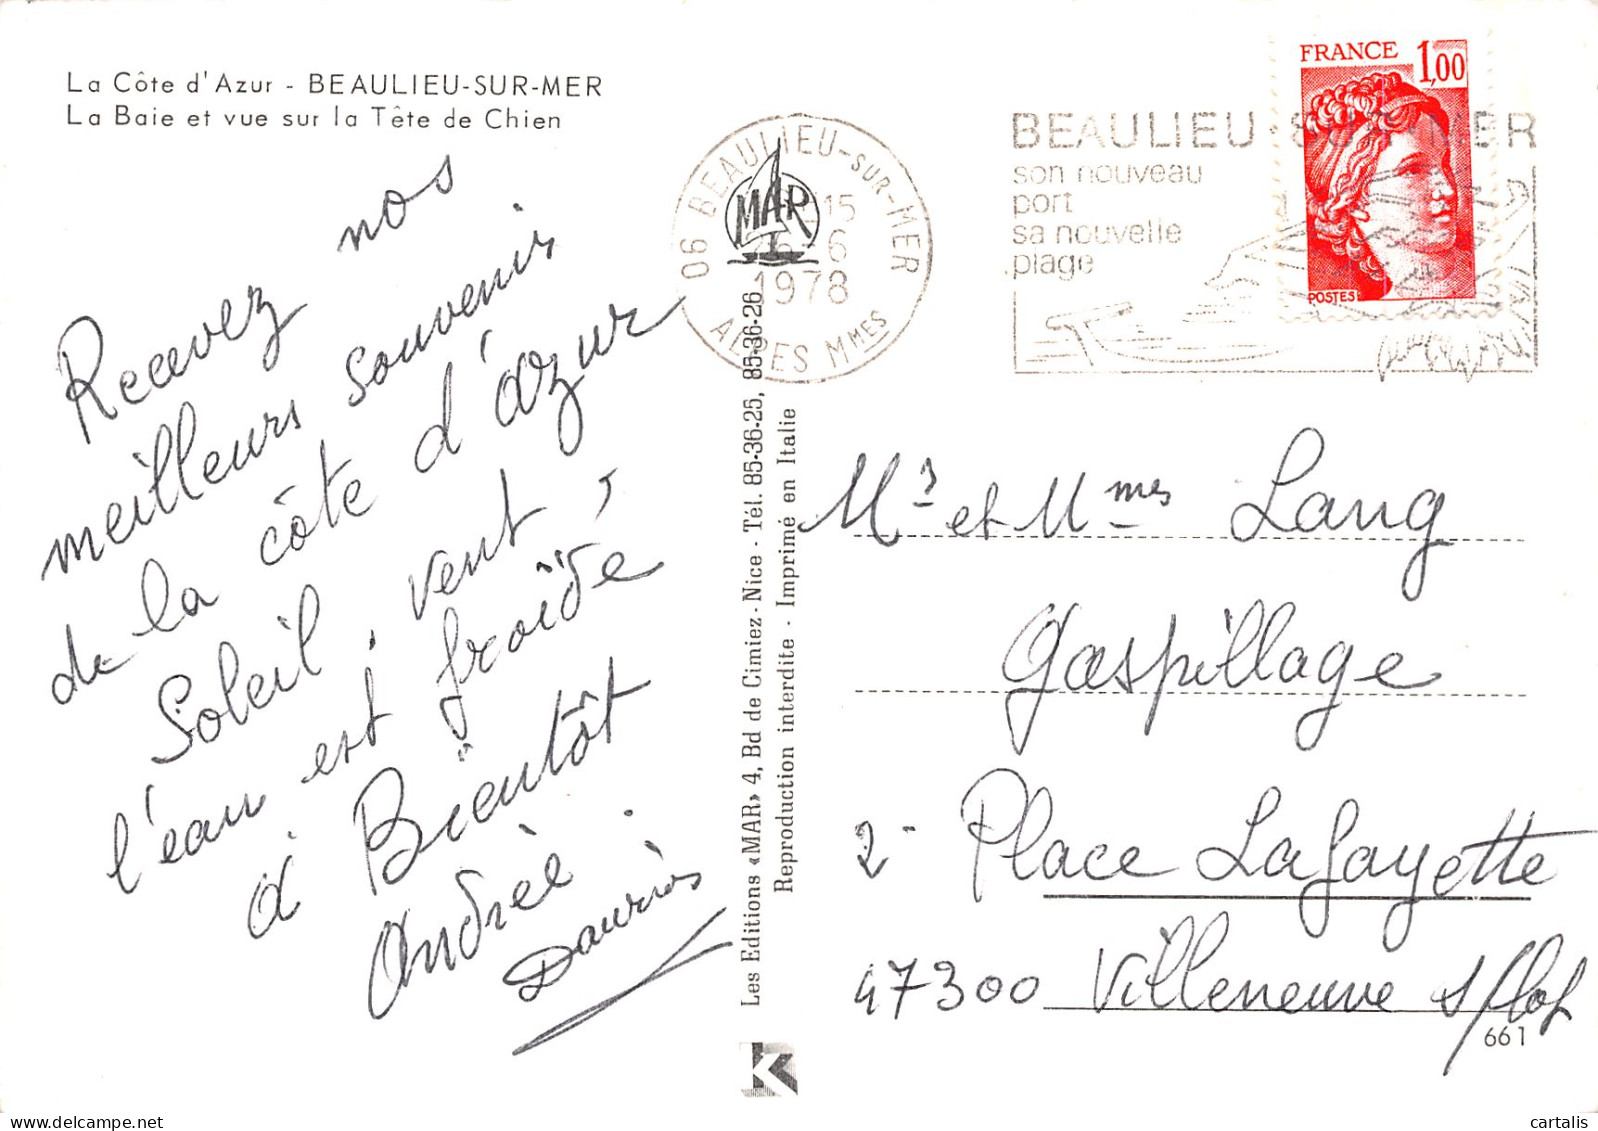 La Côte d'Azur - BEAULIEU-SUR-MER
La Baie et vue sur la Tête de Chien
Recevez nos
meilleurs souvenirs
de la côte d'azur
Soleil, vent,
l'eau est froide
à Bientôt
Andrée
06 BEAULIEU-SUR-MER
15
26-6
1978
ALPES MMES
MAR
BEAULIEU SUR MER
son nouveau
port
sa nouvelle
plage
FRANCE 1,00
POSTES
Les Editions «MAR» 4, Bd de Cimiez - Nice - Tél. 85-36-25, 85-36-26
Reproduction interdite - Imprimé en Italie
K
Mrs et Mmes Lang
Gaspillage
2 - Place Lafayette
47300 Villeneuve s/Lot
661
cartalis